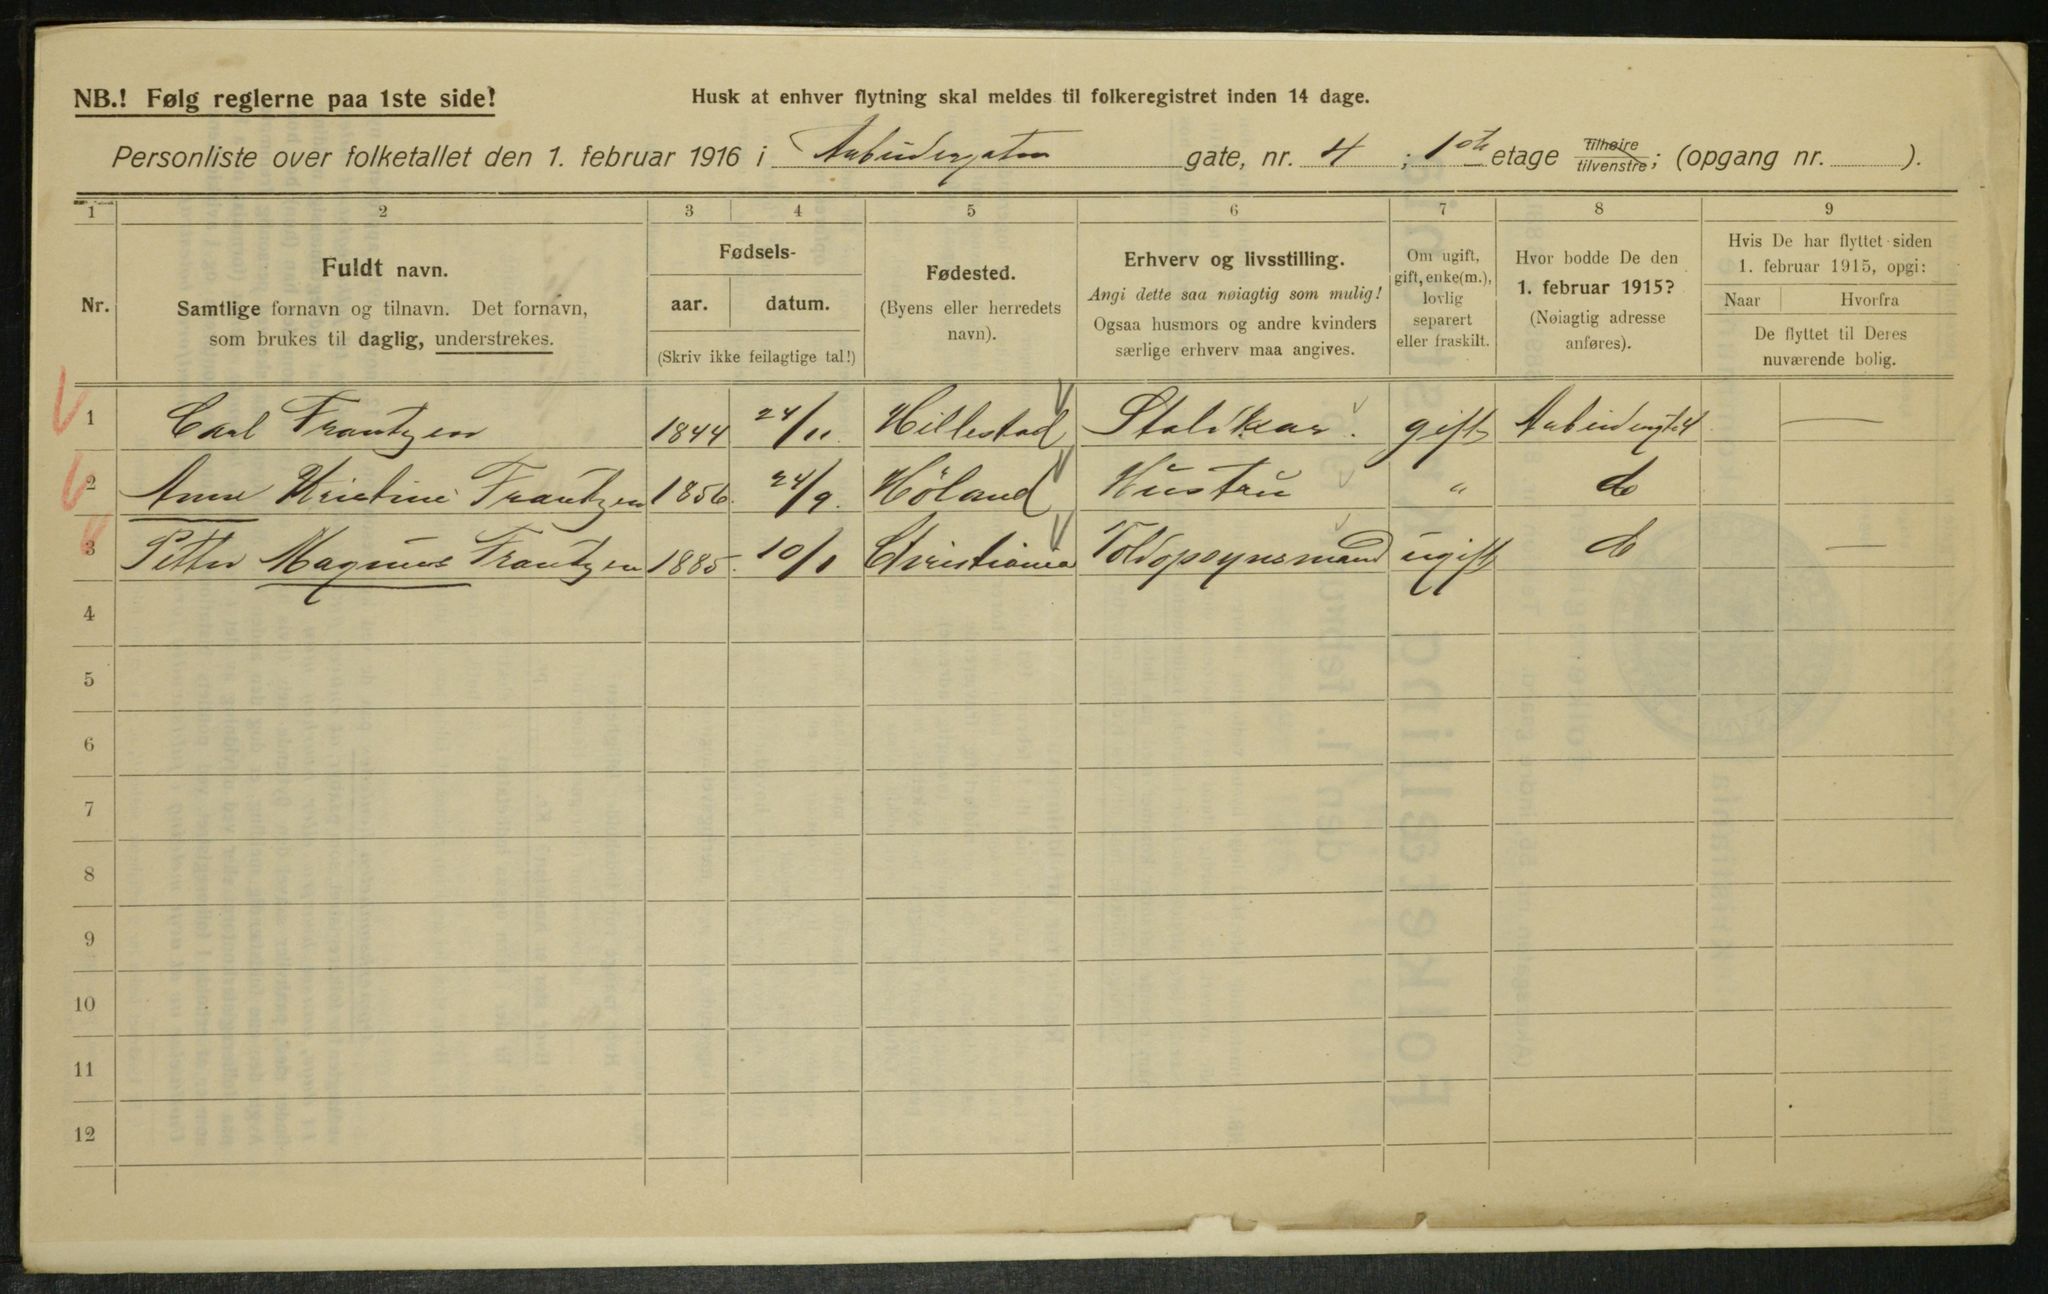 NB.! Følg reglerne paa 1ste side!
Husk at enhver flytning skal meldes til folkeregistret inden 14 dage.
Personliste over folketallet den 1. februar 1916 i Arbeidergaten gate, nr. 4 ; 1ste etage tilhøire tilvenstre; (opgang nr. ).
1 2 3 4 5 6 7 8 9
Nr.
Fuldt navn.
Samtlige fornavn og tilnavn. Det fornavn,
som brukes til daglig, understrekes.
Fødsels-
aar. datum.
(Skriv ikke feilagtige tal!)
Fødested.
(Byens eller herredets
navn).
Erhverv og livsstilling.
Angi dette saa nøiagtig som mulig!
Ogsaa husmors og andre kvinders
særlige erhverv maa angives.
Om ugift,
gift, enke(m.),
lovlig
separert
eller fraskilt.
Hvor bodde De den
1. februar 1915?
(Nøiagtig adresse
anføres).
Hvis De har flyttet siden
1. februar 1915, opgi:
Naar Hvorfra
De flyttet til Deres
nuværende bolig.
1 Carl Frantzen 1844 24/11 Hillestad gift —
2 Anna Kristine Frantzen 1856 24/9. Høland Hustru " do
3 Petter Magnus Frantzen 1885 10/1 Christiania Toldopsynsmand ugift do —
4
5
6
7
8
9
10
11
12